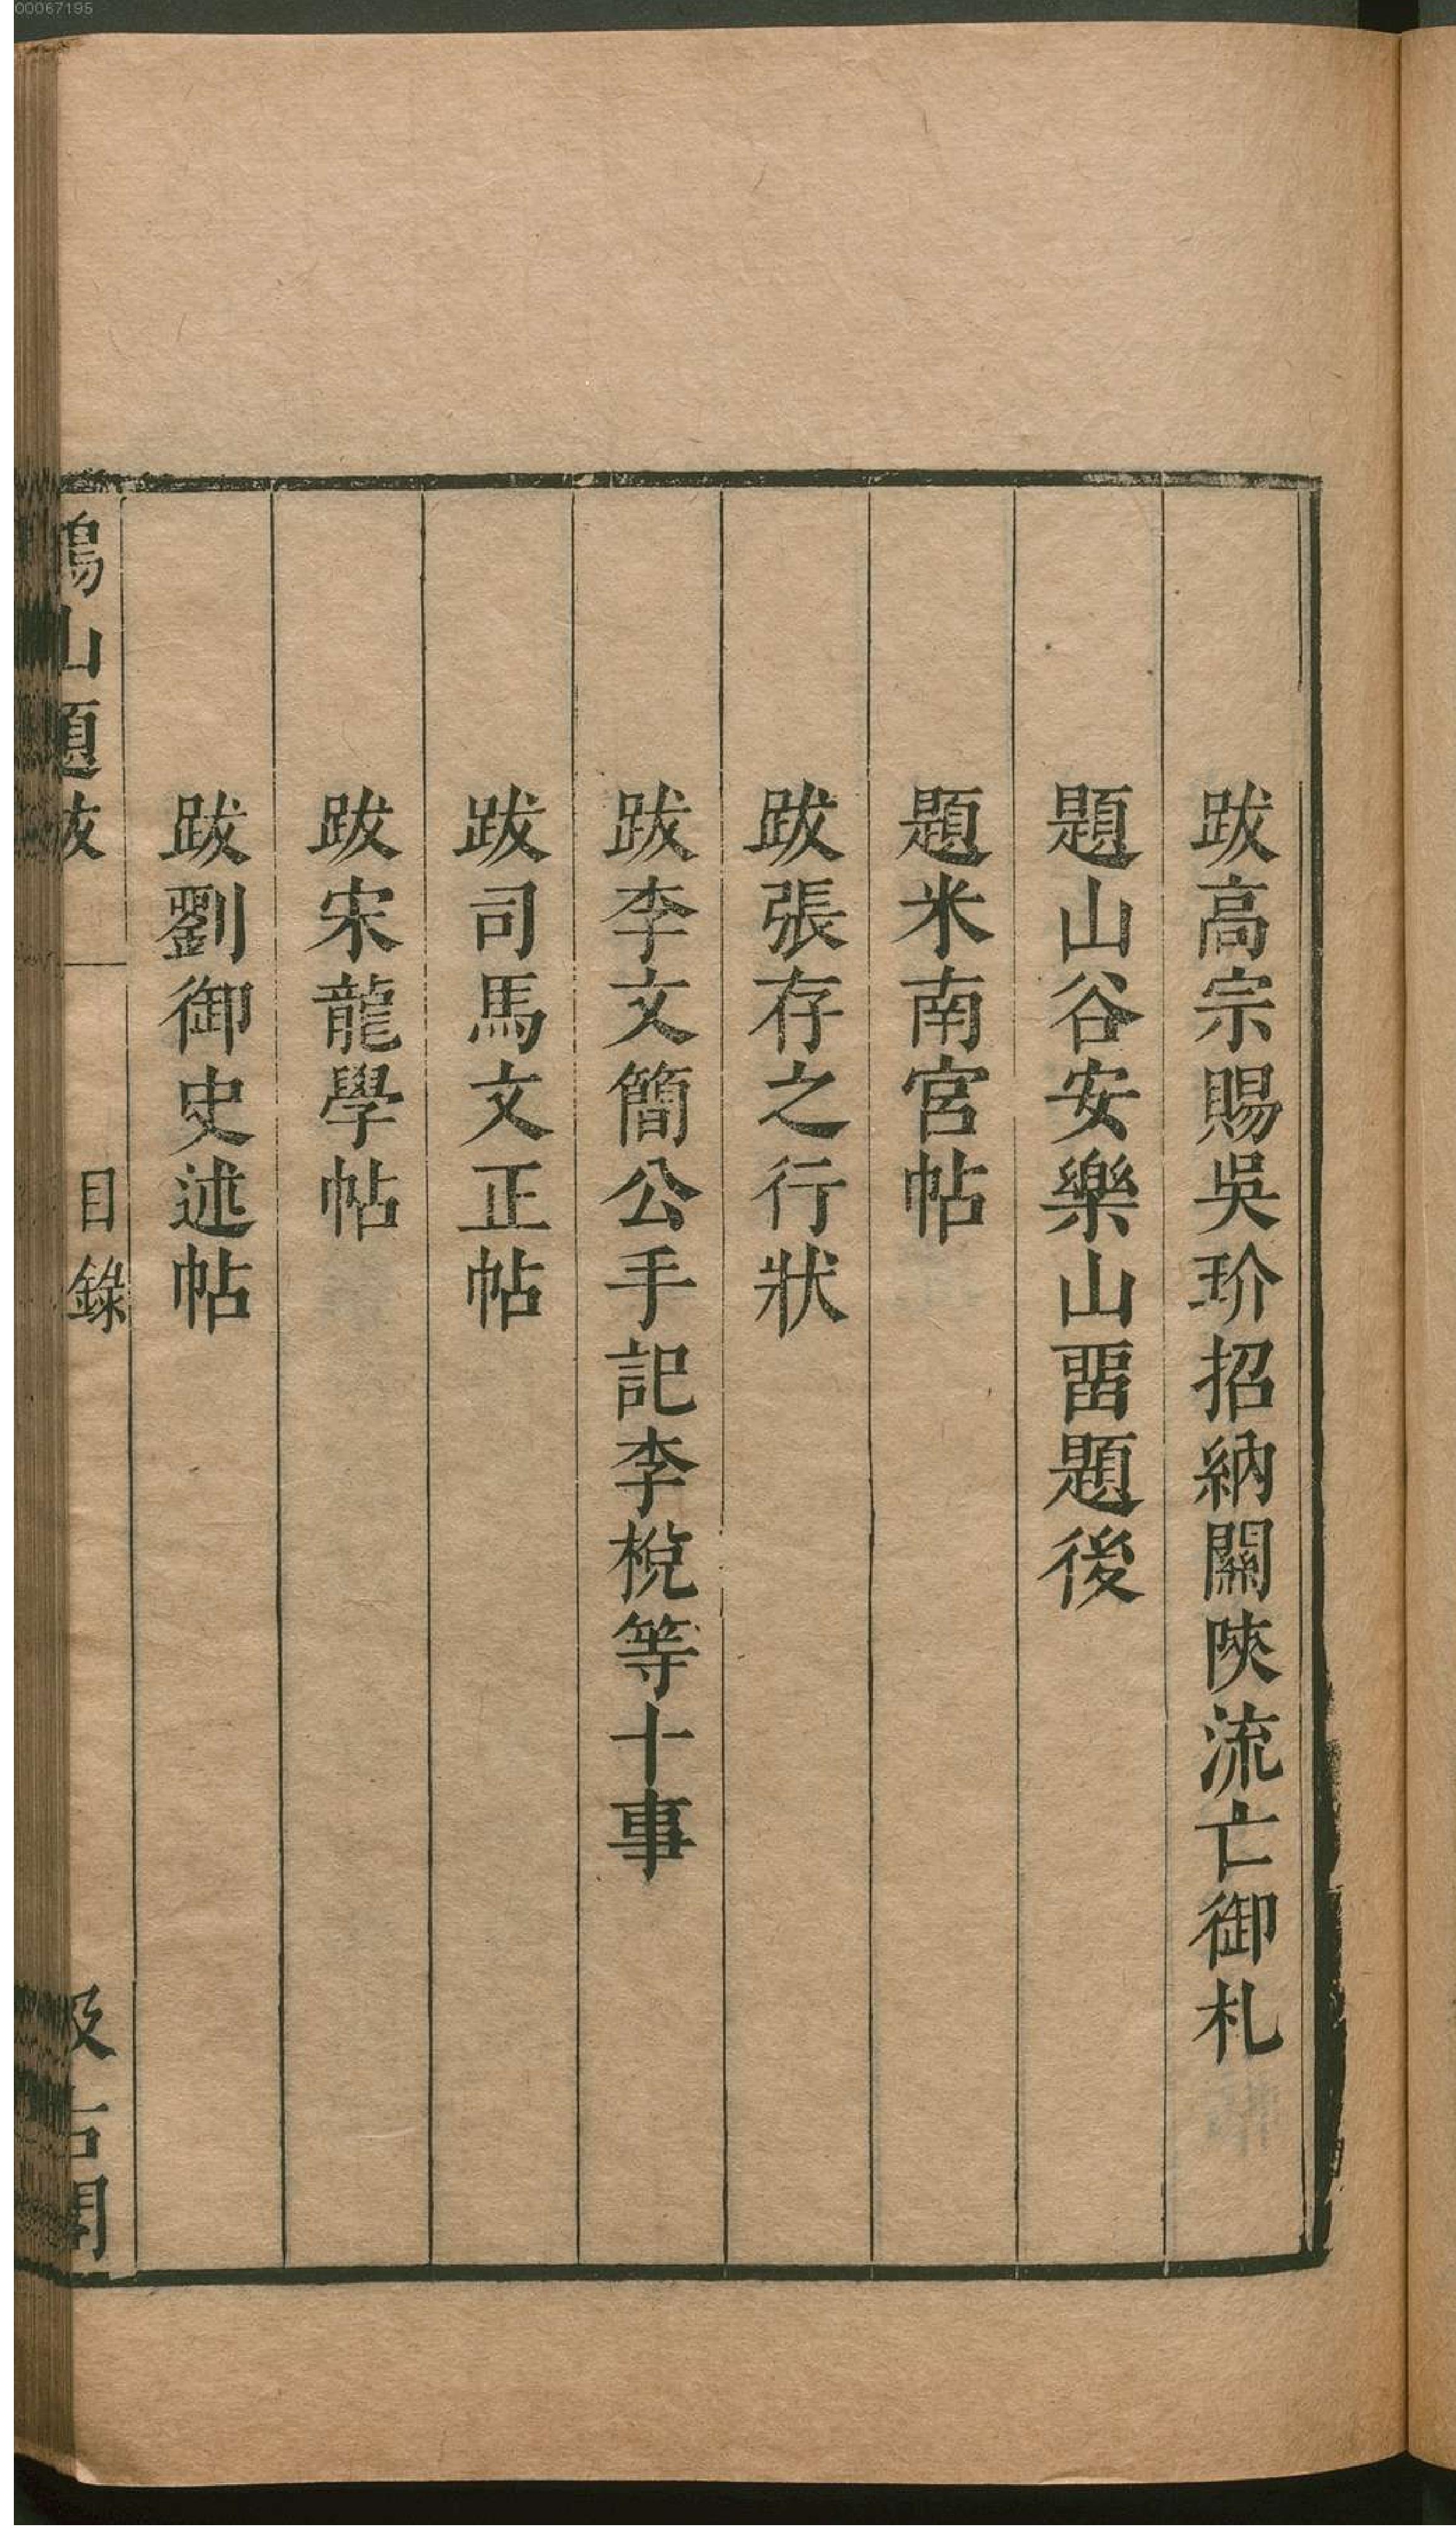 跋高宗賜吳玠招納關陝流亡御札
題山谷安樂山畱題後
題米南宮帖
跋張存之行狀
跋李文簡公手記李梲等十事
跋司馬文正帖
跋宋龍學帖
跋劉御史述帖
山題跋 目錄 汲古閣
00067195